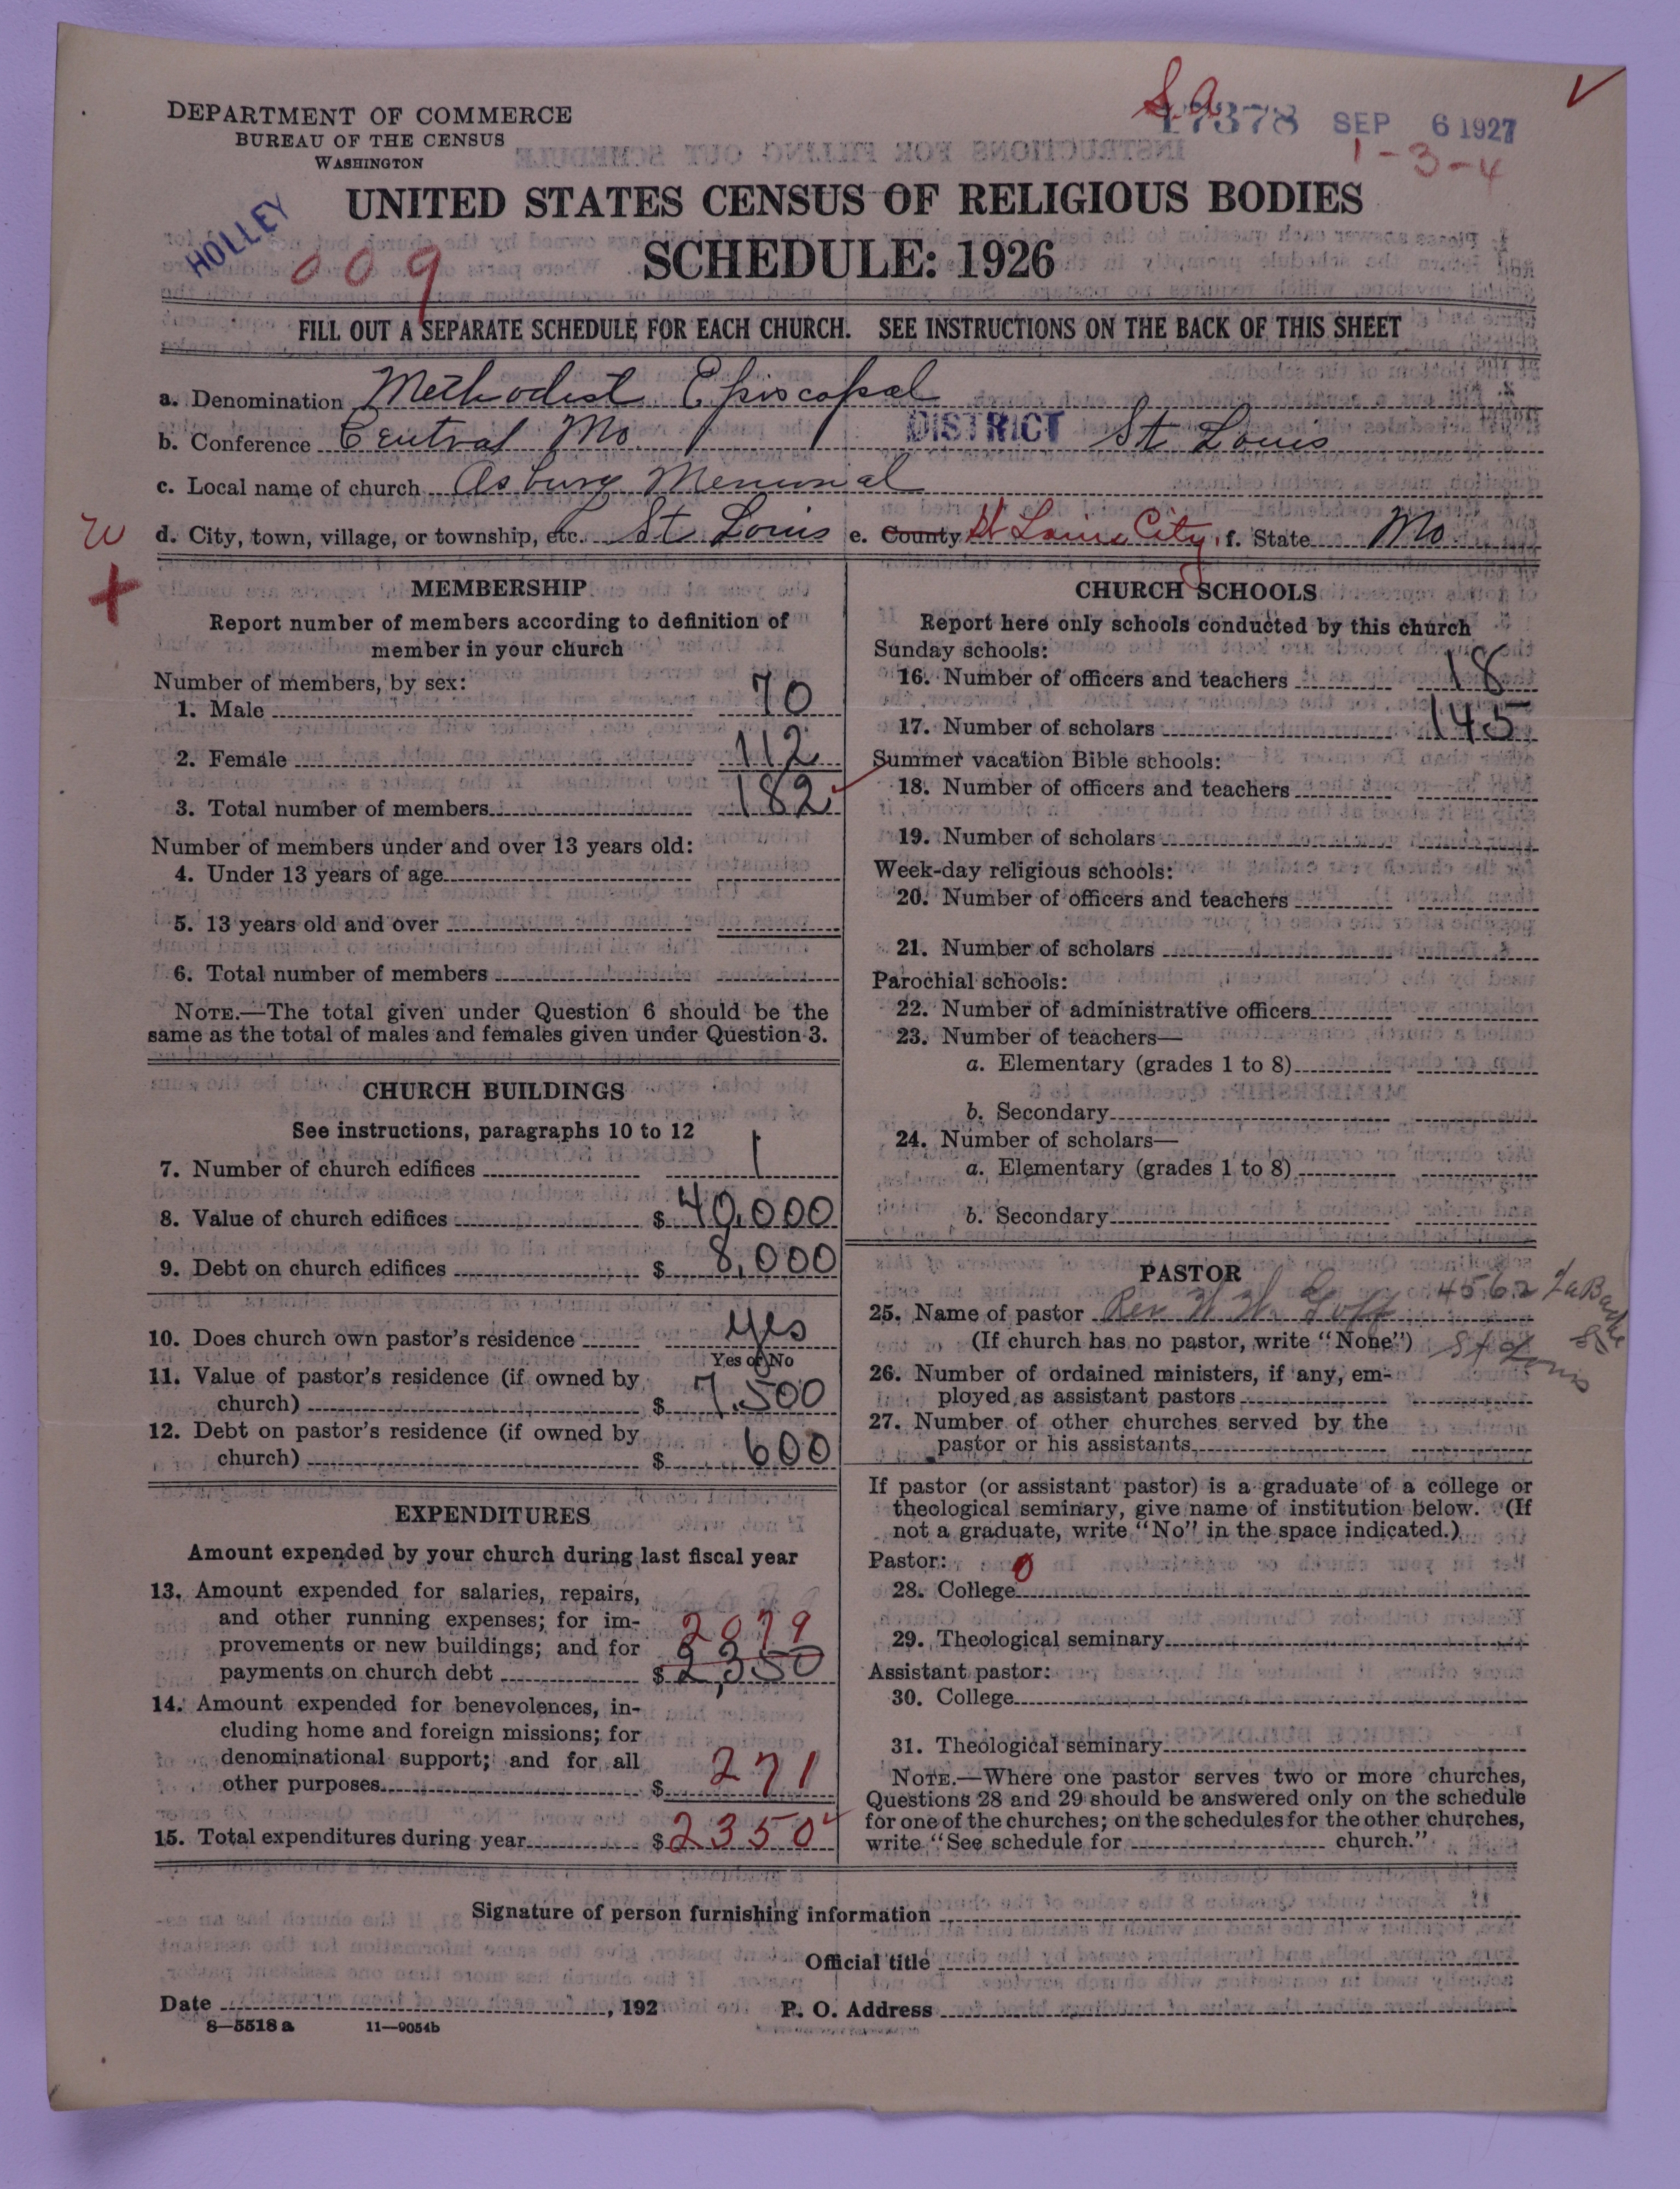 DEPARTMENT OF COMMERCE
BUREAU OF THE CENSUS
WASHINGTON
S.a.
17378 SEP 6 1927
1-3-4
HOLLEY
009
UNITED STATES CENSUS OF RELIGIOUS BODIES
SCHEDULE: 1926
FILL OUT A SEPARATE SCHEDULE FOR EACH CHURCH. SEE INSTRUCTIONS ON THE BACK OF THIS SHEET
a. Denomination Methodist Episcopal
b. Conference Central Mo. DISTRICT St Louis
c. Local name of church Asbury Memorial
d. City, town, village, or township, etc. St Louis e. County St Louis City f. State Mo.
MEMBERSHIP
Report number of members according to definition of
member in your church
Number of members, by sex:
1. Male 70
2. Female 112
3. Total number of members 182
Number of members under and over 13 years old:
4. Under 13 years of age
5. 13 years old and over
6. Total number of members
NOTE.—The total given under Question 6 should be the
same as the total of males and females given under Question 3.
CHURCH BUILDINGS
See instructions, paragraphs 10 to 12
7. Number of church edifices 1
8. Value of church edifices $ 40,000
9. Debt on church edifices $ 8,000
10. Does church own pastor's residence yes
Yes or No
11. Value of pastor's residence (if owned by
church) $ 7,500
12. Debt on pastor's residence (if owned by
church) $ 600
EXPENDITURES
Amount expended by your church during last fiscal year
13. Amount expended for salaries, repairs,
and other running expenses; for im-
provements or new buildings; and for 2079
payments on church debt $ 2,350
14. Amount expended for benevolences, in-
cluding home and foreign missions; for
denominational support; and for all
other purposes $ 271
15. Total expenditures during year $ 2350
CHURCH SCHOOLS
Report here only schools conducted by this church
Sunday schools:
16. Number of officers and teachers 18
17. Number of scholars 145
Summer vacation Bible schools:
18. Number of officers and teachers
19. Number of scholars
Week-day religious schools:
20. Number of officers and teachers
21. Number of scholars
Parochial schools:
22. Number of administrative officers
23. Number of teachers—
a. Elementary (grades 1 to 8)
b. Secondary
24. Number of scholars—
a. Elementary (grades 1 to 8)
b. Secondary
PASTOR
25. Name of pastor Rev. W. W. Goff 4562 LaBadie
(If church has no pastor, write "None") St Louis
26. Number of ordained ministers, if any, em-
ployed as assistant pastors
27. Number of other churches served by the
pastor or his assistants
If pastor (or assistant pastor) is a graduate of a college or
theological seminary, give name of institution below. (If
not a graduate, write "No" in the space indicated.)
Pastor: 0
28. College
29. Theological seminary
Assistant pastor:
30. College
31. Theological seminary
NOTE.—Where one pastor serves two or more churches,
Questions 28 and 29 should be answered only on the schedule
for one of the churches; on the schedules for the other churches,
write "See schedule for church."
Signature of person furnishing information
Official title
Date , 192 P. O. Address
8—5518 a 11—9054b